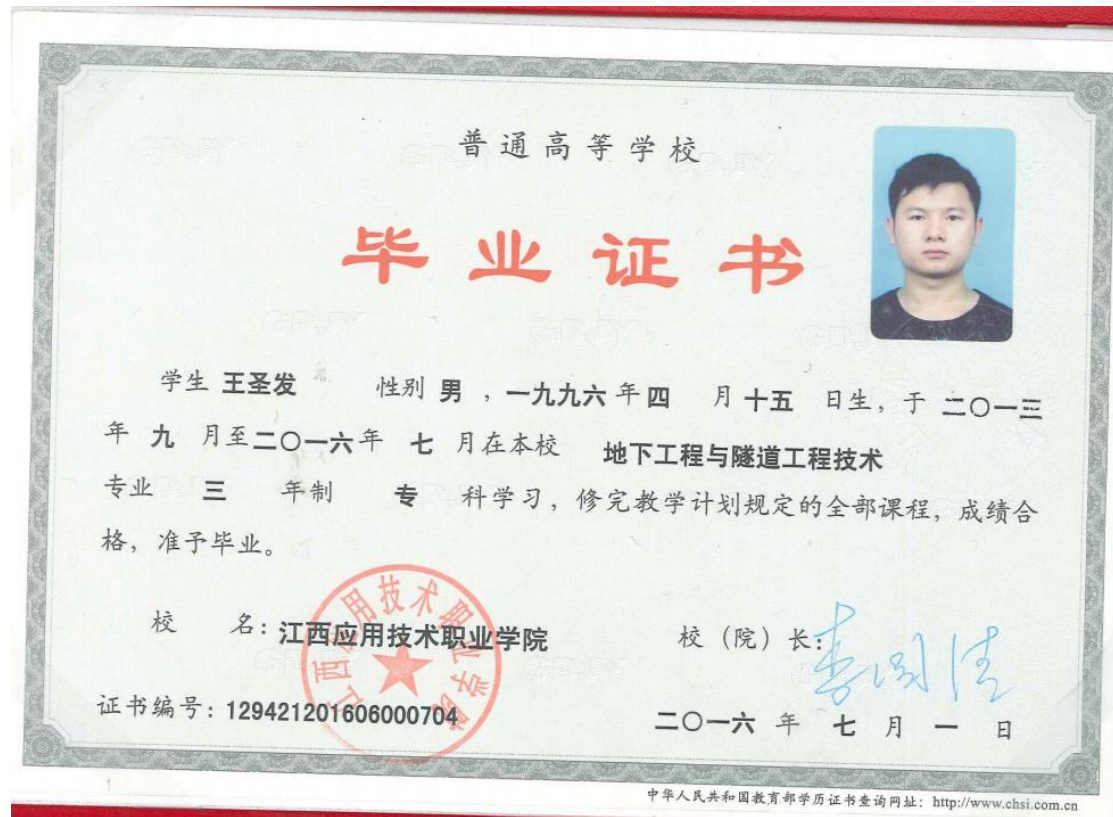 普通高等学校
毕业证书
学生 王圣发 性别 男 ，一九九六 年 四 月 十五 日生，于 二〇一三
年 九 月至二〇一六年 七 月在本校 地下工程与隧道工程技术
专业 三 年制 专 科学习，修完教学计划规定的全部课程，成绩合
格，准予毕业。
校 名：江西应用技术职业学院 校（院）长：
江西应用技术职业学院
证书编号：129421201606000704 二〇一六 年 七 月 一 日
中华人民共和国教育部学历证书查询网址：http://www.chsi.com.cn